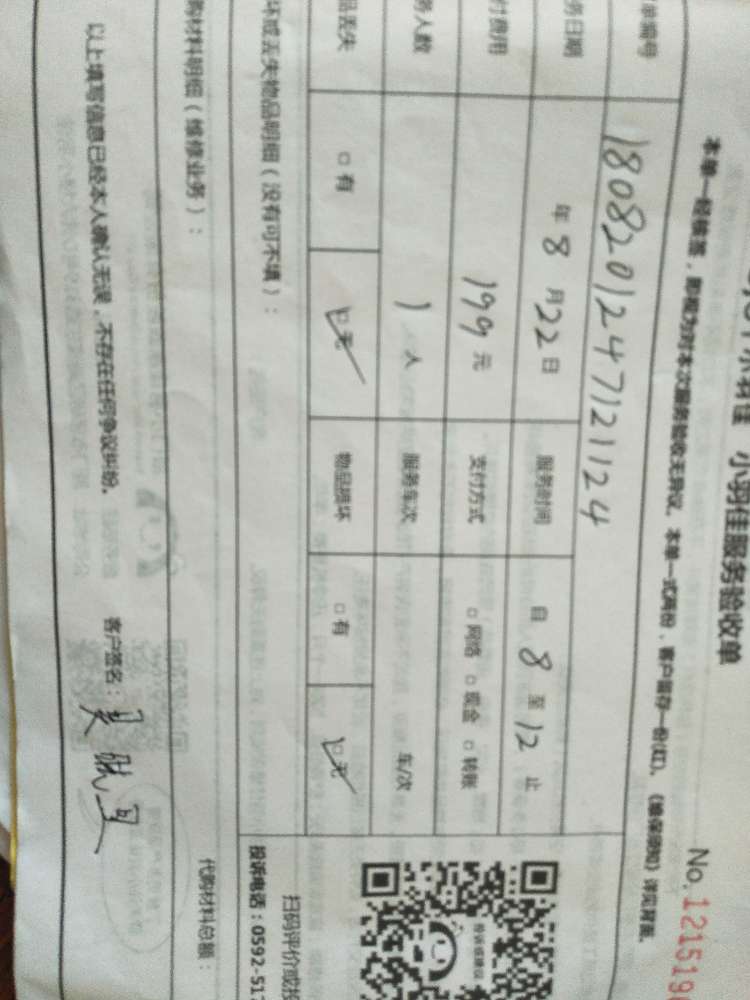 小羽佳 小羽佳服务验收单
No.121519
本单一经横签，即视为对本次服务验收无异议。本单一式两份，客户留存一份(红)。《维保须知》详见背面。
单编号 1808201247121124
务日期 年 8 月 22 日 服务时间 自 8 至 12 止
付费用 199 元 支付方式 □网络 □现金 □转账
务人数 1 人 服务车次 车/次
品丢失 □有 □无 物品损坏 □有 □无
坏或丢失物品明细（没有可不填）：
扫码评价或投
投诉电话：0592-517
购材料明细（维修业务）：
代购材料总额：
以上填写信息已经本人确认无误，不存在任何争议纠纷。 客户签名：